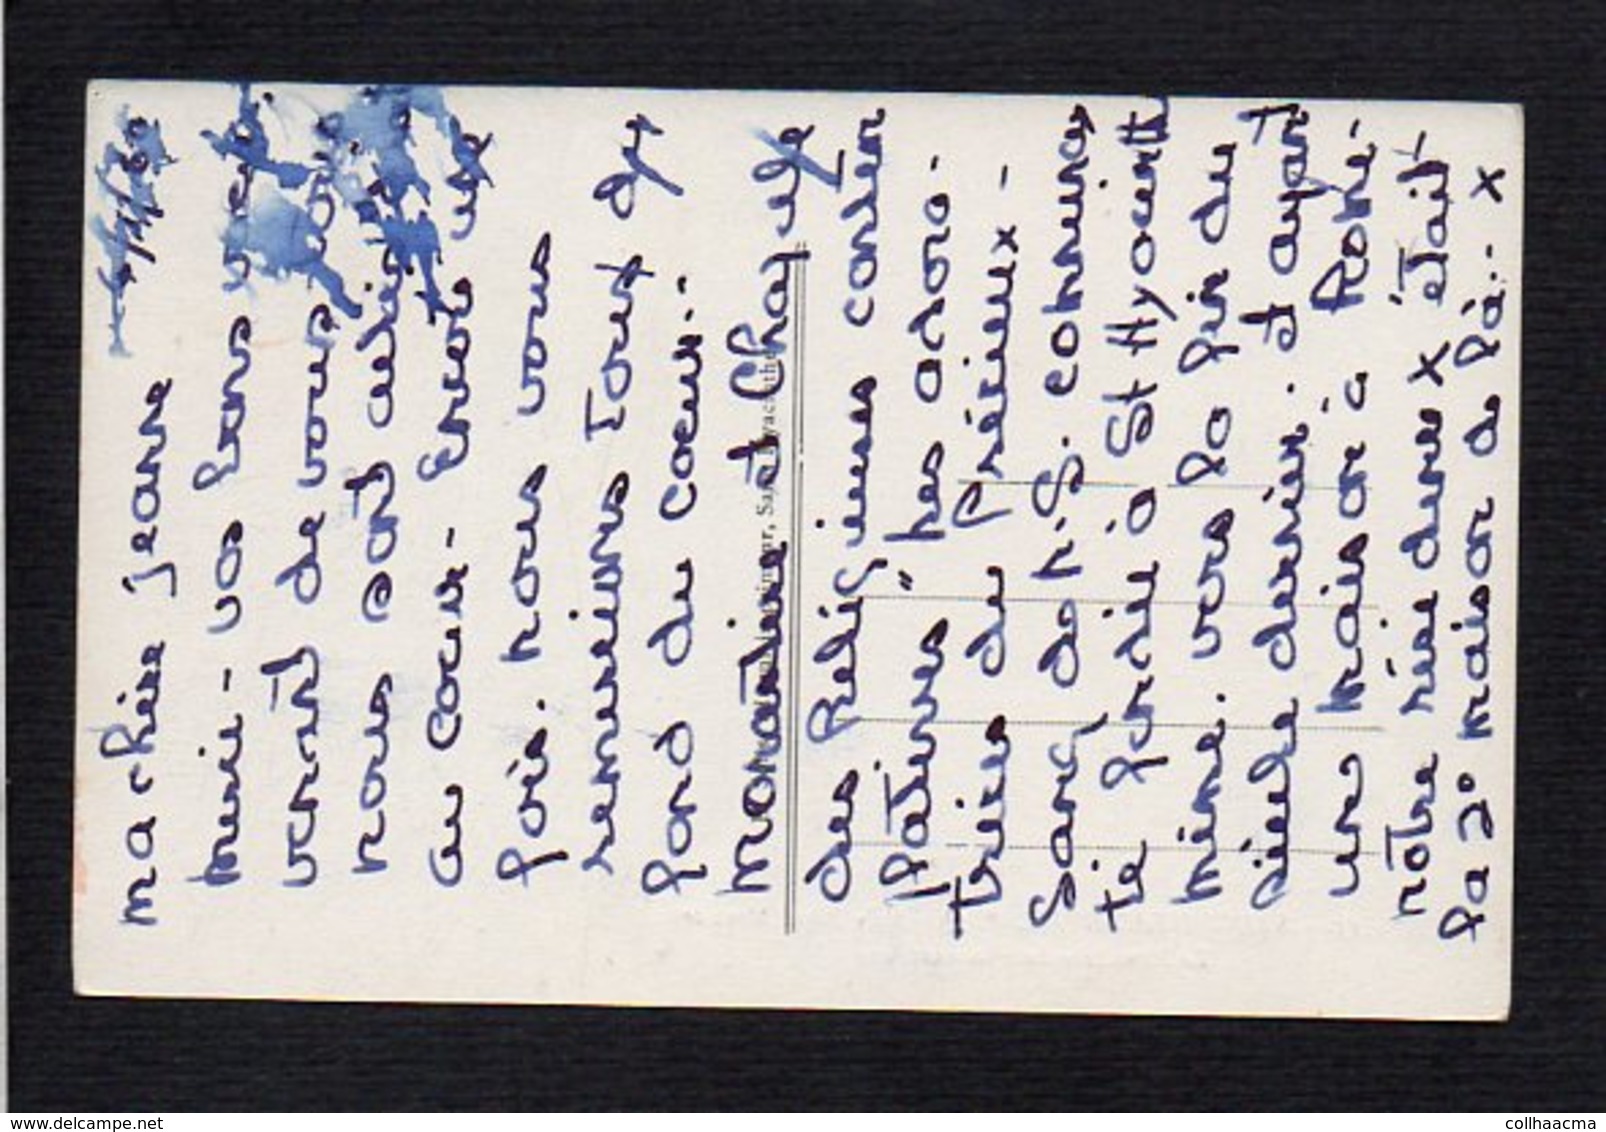 4/1/60
ma chère Jeanne
merci - vos bons vœux
venant de vous
nous sont allés
au cœur - Encore une
fois. nous vous
remercions Tous du
fond du cœur. -
monastère et Chapelle
des Religieuses contem
platives " les adora-
trices du Précieux -
Sang de N. S. connues
te fondée à St Hyacinthe
même. vers la fin du
siècle dernier. et ayant
une maison à Rome -
notre rue dure x était
la 2e maison de là. - x
imprimeur, Saint-Hyacinthe
www.delcampe.net
collhaacma